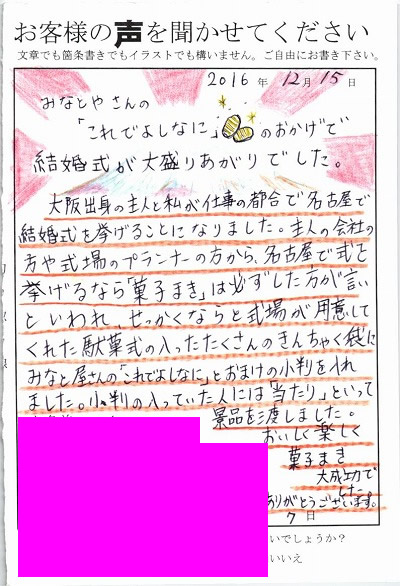 お客様の声を聞かせてください
文章でも箇条書きでもイラストでも構いません。ご自由にお書き下さい。
2016 年 12 月 15 日
みなとやさんの
「これでよしなに」のおかげで
結婚式が大盛りあがりでした。
大阪出身の主人と私が仕事の都合で名古屋で
結婚式を挙げることになりました。主人の会社の
方や式場のプランナーの方から、名古屋で式を
挙げるなら「菓子まき」は必ずした方が言い
といわれ、せっかくならと式場が用意して
くれた駄菓式の入ったたくさんのきんちゃく袋に
みなと屋さんの「これでよしなに」とおまけの小判を入れ
ました。小判の入っていた人には「当たり」といって
景品を渡しました。
おいしく楽しく
菓子まき
大成功で
した。
ありがとうございます。
7 日
いでしょうか？
いいえ